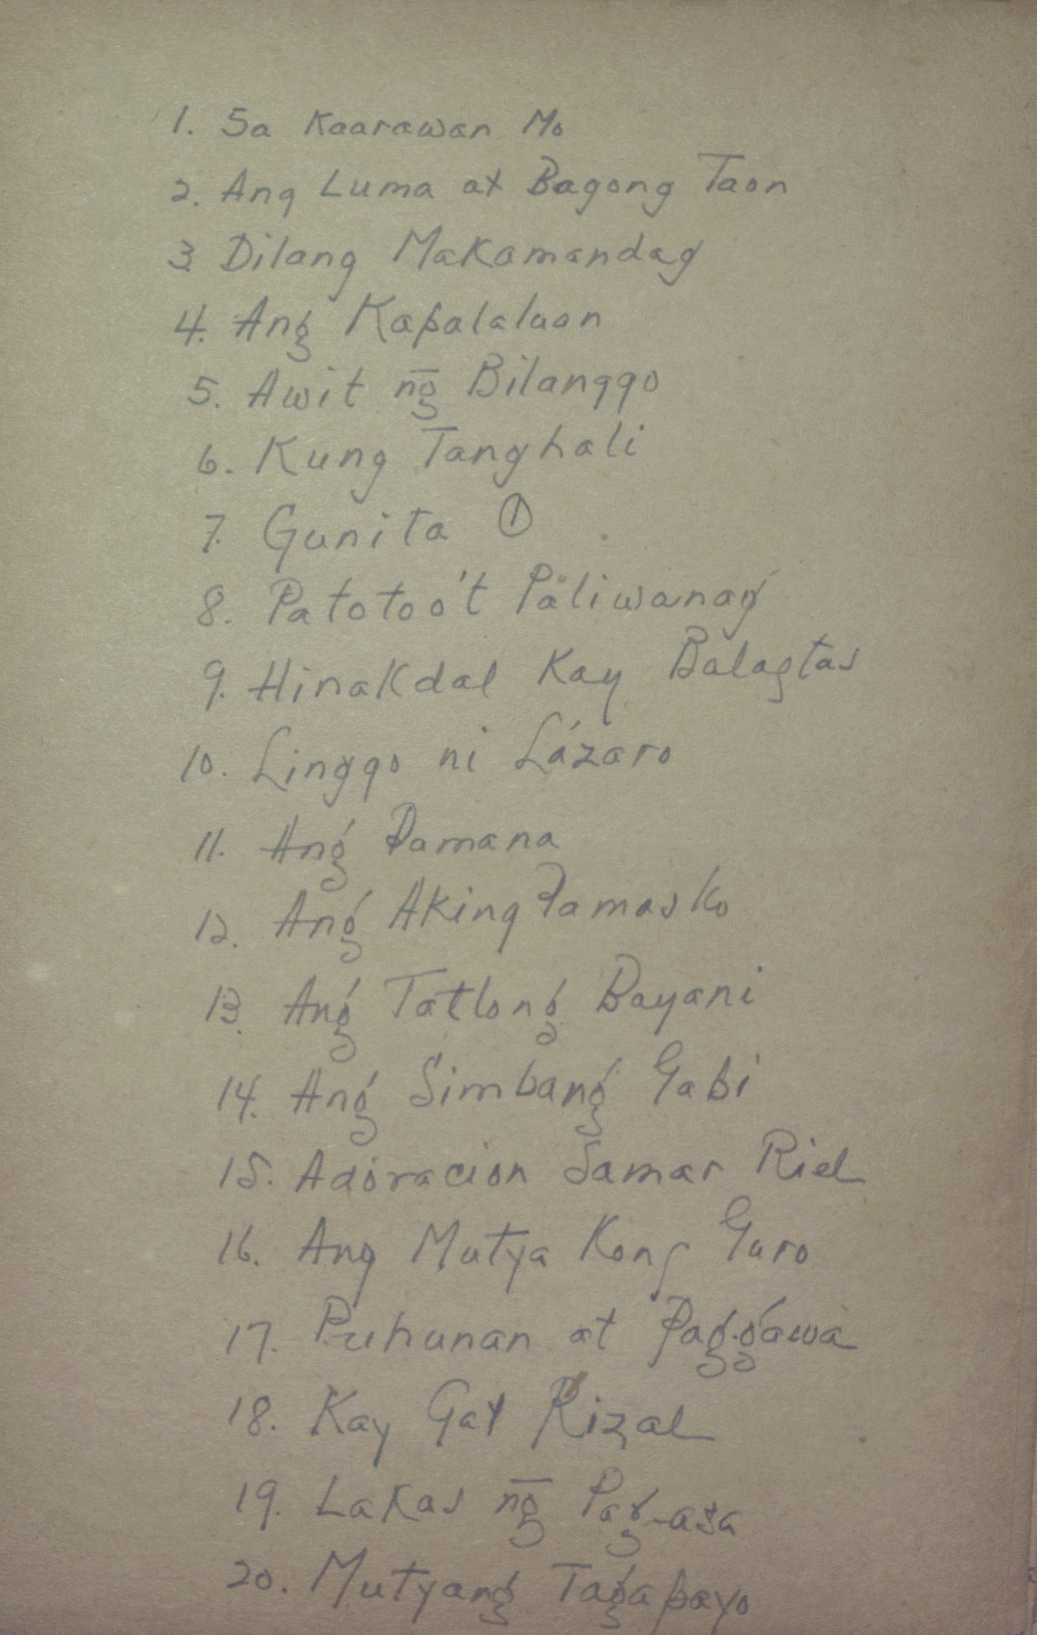 1. Sa Kaarawan Mo
2. Ang Luma at Bagong Taon
3 Dilang Makamandag
4. Ang Kapalaluan
5. Awit n͠g Bilanggo
6. Kung Tanghali
7. Gunita ①
8. Patotoo't Paliwanag
9. Hinakdal Kay Balagtas
10. Linggo ni Lázaro
11. Ang Pamana
12. Ang Aking Pamasko
13. Ang Tatlong Bayani
14. Ang Simbang Gabi
15. Adoracion Samar Riel
16. Ang Mutya Kong Guro
17. Puhunan at Pag-gawa
18. Kay Gat Rizal
19. Lakas n͠g Pag-asa
20. Mutyang Tagapayo